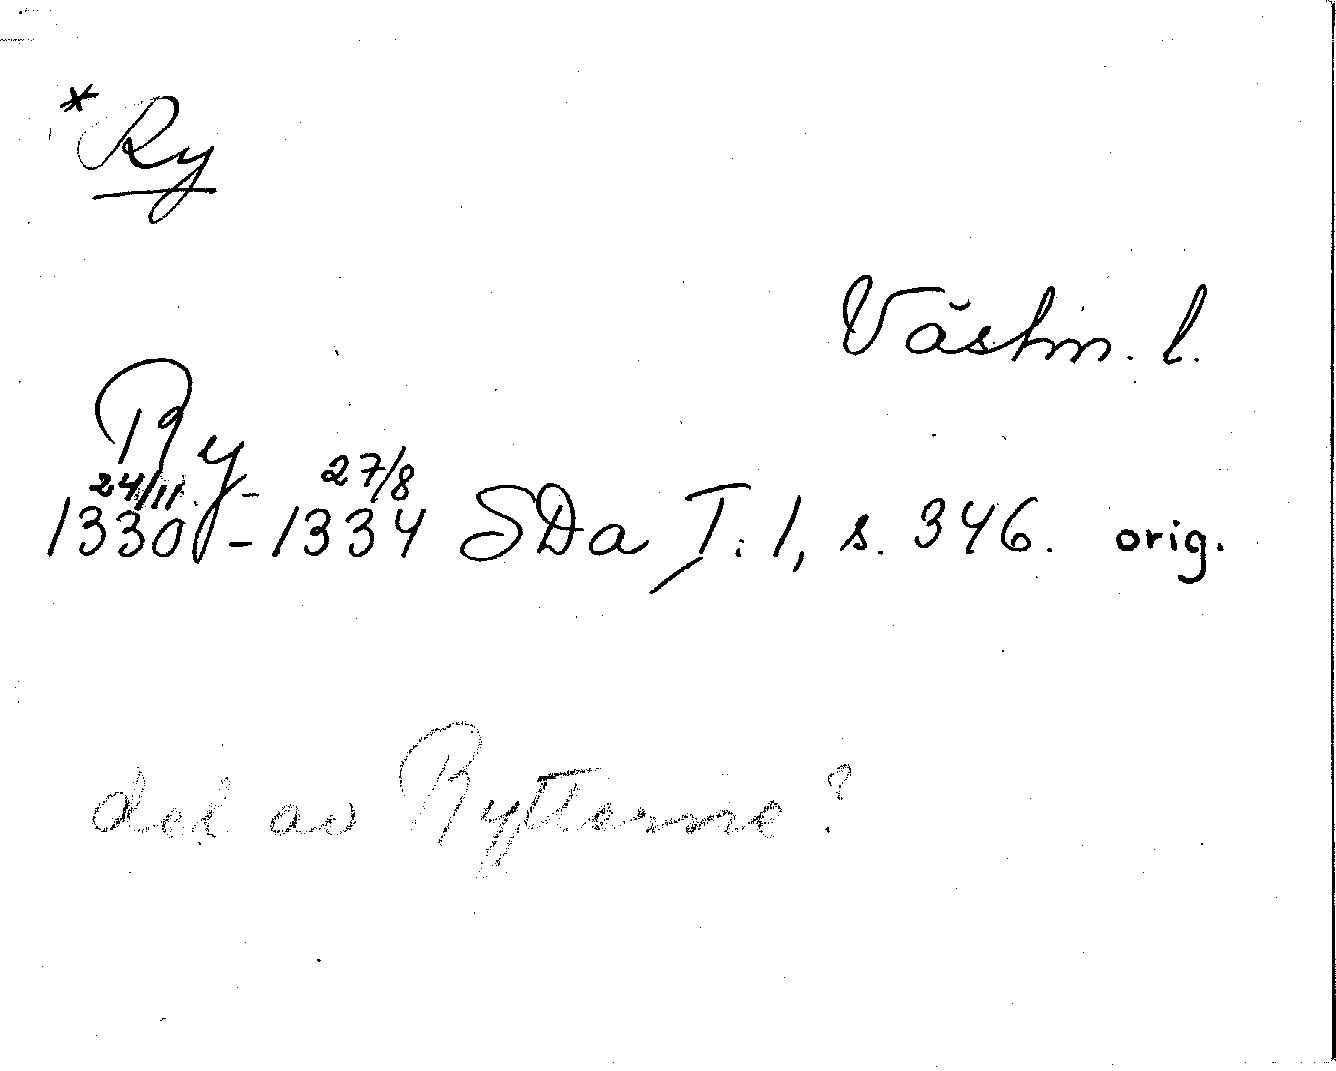 *Ry
Västm. l.
Ry
24/11 - 27/8
1330 - 1334 SDa T. 1, s. 346. orig.
del av Rytterne?